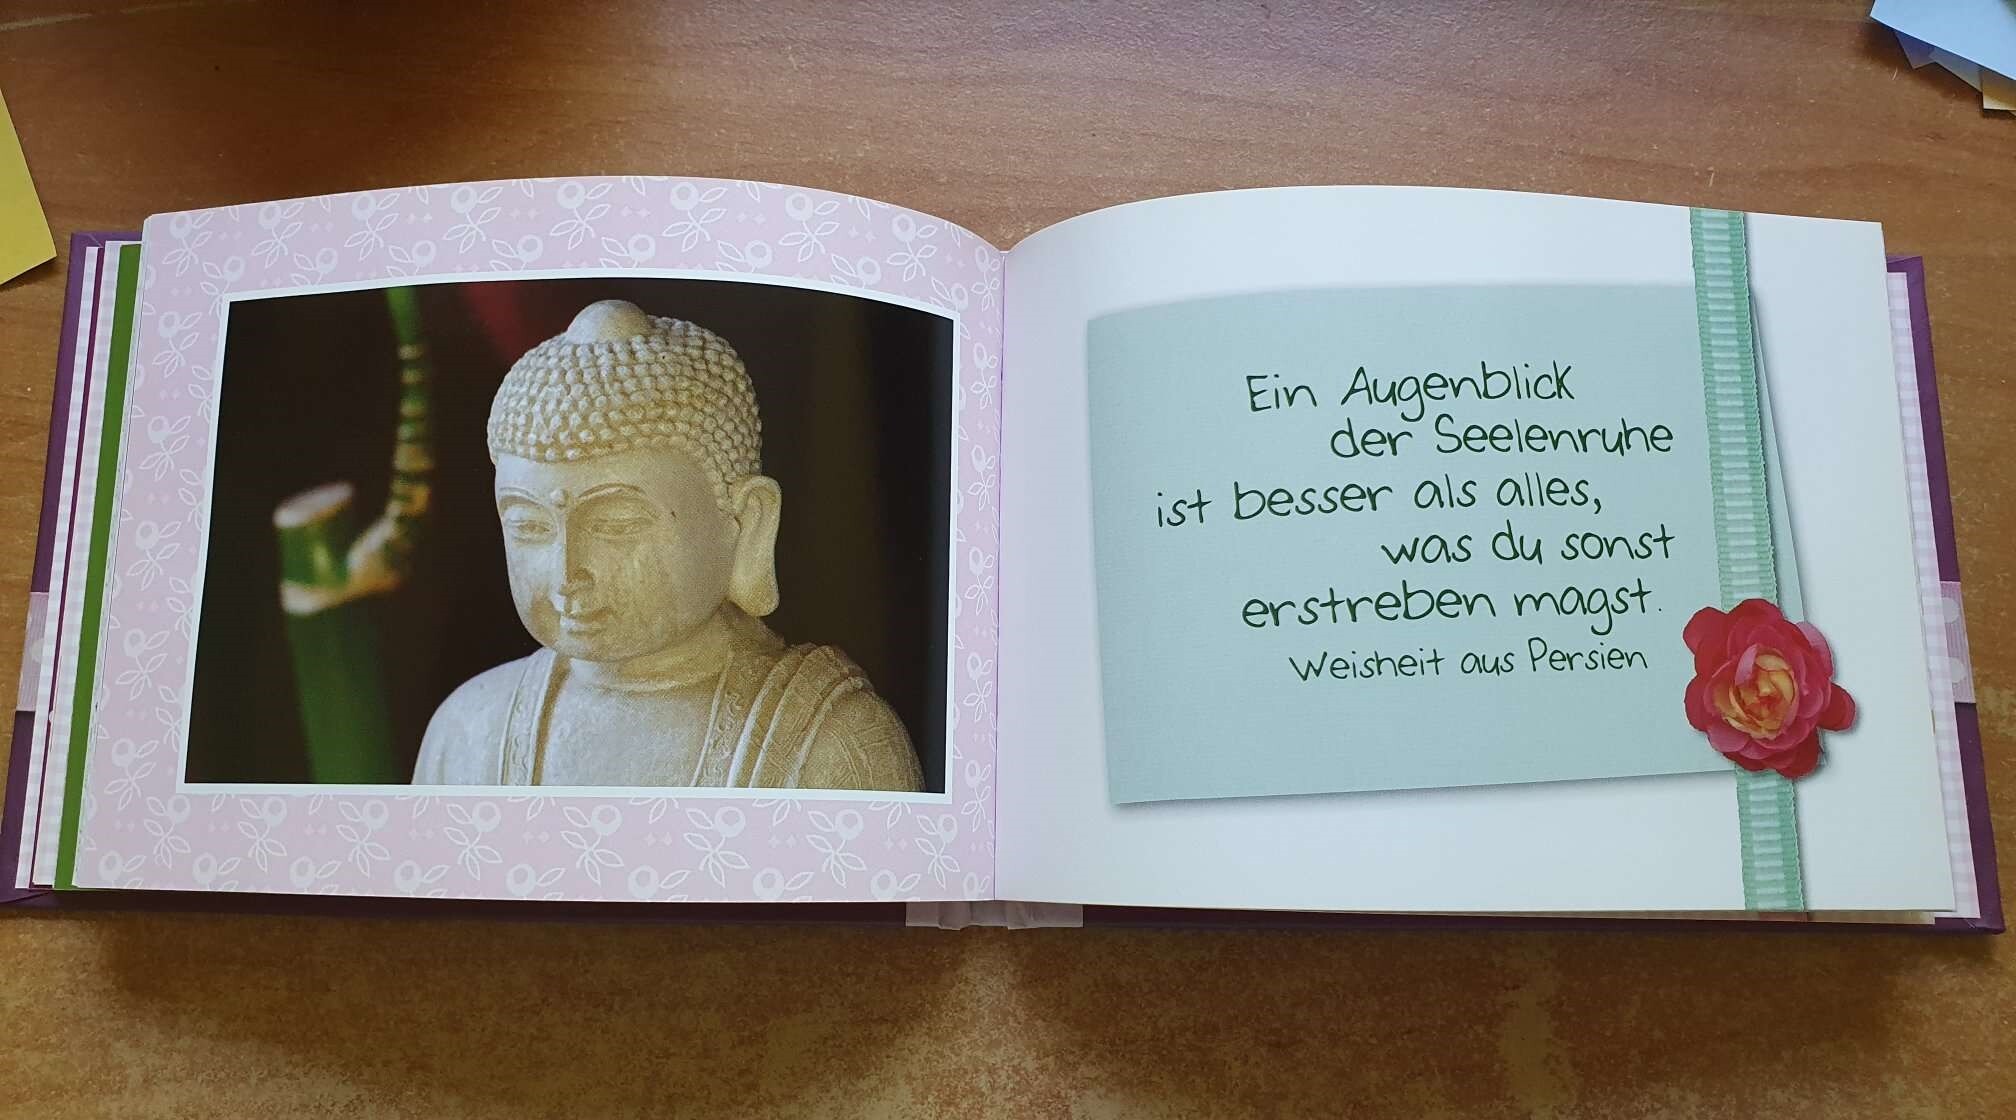 Ein Augenblick
der Seelenruhe
ist besser als alles,
was du sonst
erstreben magst.
Weisheit aus Persien